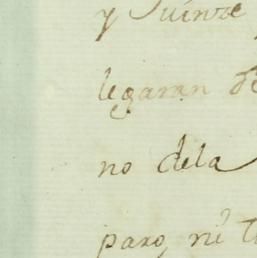 y Quinze
legaran
no dela
paxo, ni